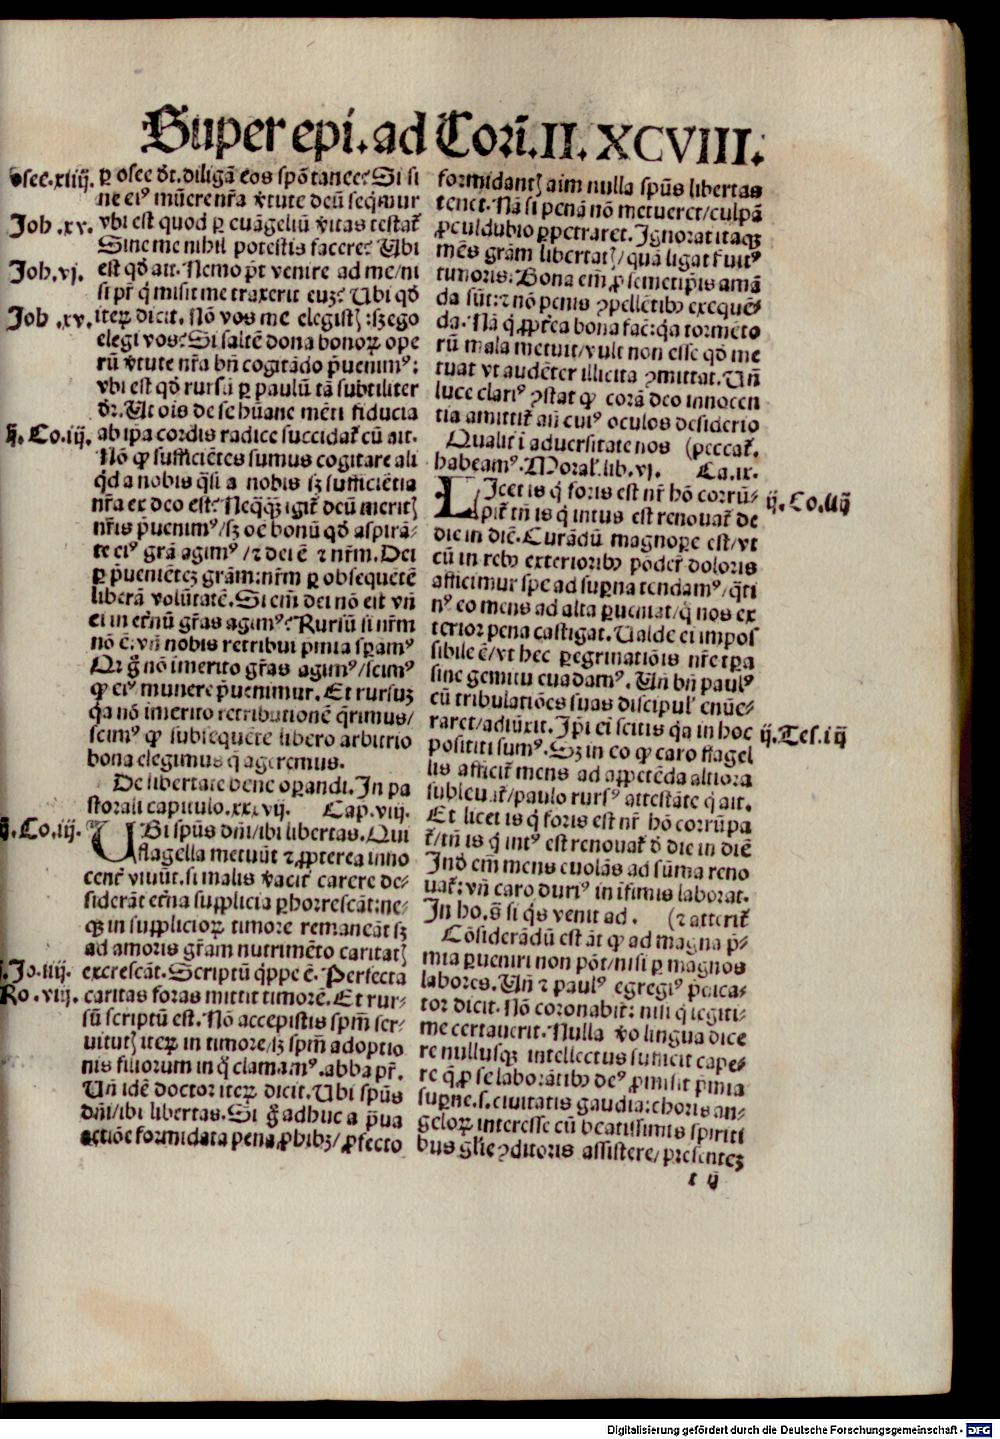 Super epi. ad Corī. II. XCVIII.
osee .xiiij.
Joh .xv.
Joh. vj.
Joh .xv.
ij. Co. iij.
ij. Co. iij.
j. Jo. iiij.
Ro. viij.
ꝑ osee dr̄t. diligā eos spōtanee? Si si
ne eiꝰ mūere nr̄a v̄tute deū seqmur
vbi est quod ꝑ euāgeliū v̄itas testat᷑
Sine me nihil potestis facere? Ubi
est qd̄ ait. Nemo pt̄ venire ad me / ni
si pr̄ q̄ misit me traxerit euꝫ? Ubi qd̄
iteꝝ dicit. Nō vos me elegistꝭ: sꝫ ego
elegi vos? Si saltē dona bonoꝝ ope
rū v̄tute nr̄a bn̄ cogitādo p̄uenimꝰ:
vbi est qd̄ rursū ꝑ paulū tā subtiliter
dr̄. Ut ois de se hūane mēti fiducia
ab ip̄a cordis radice succidat᷑ cū ait.
Nō ꝙ sufficiētes sumus cogitare ali
q̄d a nobis q̄si a nobis sꝫ sufficiētia
nr̄a ex deo est? Neqꝫ igit᷑ deū meritꝭ
nr̄is p̄uenimꝰ / sꝫ oē bonū qd̄ aspirā-
te eiꝰ grā agimꝰ / ⁊ dei ē ⁊ nr̄m. Dei
ꝑ p̄ueniēteꝫ grām: nr̄m ꝑ obsequētē
liberā volūtatē. Si em̄ dei nō est vn̄
ei in et̄nū gr̄as agimꝰ? Rursū si nr̄m
nō ē: vn̄ nobis retribui p̄mia sꝑamꝰ
Qr ḡ nō imerito gr̄as agimꝰ / scimꝰ
ꝙ eiꝰ munere p̄uenimur. Et rursuꝫ
q̄a nō imerito retributionē q̄rimus /
scimꝰ ꝙ subsequēte libero arbitrio
bona elegimus q̄ ageremus.
De libertate bene oꝑandi. In pa
storali capitulo .xxxvij. Cap. viij.
UBi spūs dn̄i / ibi libertas. Qui
flagella metuūt ⁊ ꝓpterea inno
cent᷑ viuūt. si malis v̄acit᷑ carere de-
siderāt et̄na supplicia ꝑhorrescāt: ne-
qꝫ in supplicioꝝ timore remaneāt sꝫ
ad amoris gr̄am nutrimēto caritatꝭ
excrescāt. Scriptū q̄ppe ē. Perfecta
caritas foras mittit timorē. Et rur-
sū scriptū est. Nō accepistis spm̄ ser-
uitutꝭ iteꝝ in timore / sꝫ spm̄ adoptio
nis filiorum in q̄ clamamꝰ. abba pr̄.
Un̄ idē doctor iteꝝ dicit. Ubi spūs
dn̄i / ibi libertas. Si ḡ adhuc a p̄ua
actiōe formidata pena ꝓhibꝫ / ꝓfecto
formidantꝭ aim nulla spūs libertas
tenet. Nā si penā nō metueret / culpā
ꝓculdubio ꝑpetraret. Ignorat itaqꝫ
mēs grām libertatꝭ / quā ligat s̄uitꝰ
timoris. Bona em̄ ꝓ semetip̄is amā
da sūt: ⁊ nō penis ꝯpellētibꝰ exequē-
da. Nā q̄ ꝓpt̄ea bona fac̄: q̄a tormēto
rū mala metuit / vult non esse qd̄ me
tuat vt audēter illicita ꝯmittat. Un̄
luce clariꝰ ꝯstat ꝙ corā deo innocen
tia amittit᷑ an̄ cuiꝰ oculos desiderio
Qualit᷑ ī aduersitate nos (peccat᷑.
habeamꝰ. Moral᷑. lib. vj. Ca. ix.
LIcet is q̄ foris est nr̄ hō corrū-
pit᷑ tn̄ is q̄ intus est renouat᷑ de
die in diē. Curādū magnoꝑe est / vt
cū in rebꝰ exterioribꝰ pōder᷑ doloris
afficimur spe ad suꝑna tendamꝰ / q̄ti
nꝰ eo mens ad alta ꝑueniat / q̄ nos ex
terior pena castigat. Ualde ei impos
sibile ē / vt hec ꝑegrinatiōis nr̄e tꝑa
sine gemitu euadamꝰ. Un̄ bn̄ paulꝰ
cū tribulatiōes suas discipul᷑ enūe-
raret / adiūxit. Ip̄i ei scitis q̄a in hoc
posititi sumꝰ. Sꝫ in eo ꝙ caro flagel
lis afficit᷑ mens ad appetēda altiora
subleuat᷑ / paulo rursꝰ attestāte q̄ ait.
Et licet is q̄ foris est nr̄ hō corrūpa
t᷑ / tn̄ is q̄ intꝰ est renouat᷑ d̄ die in diē
Inō em̄ mens euolās ad sūma reno
uat᷑: vn̄ caro duriꝰ in īfimis laborat.
In ho. s̄ si q̄s venit ad. (⁊ atterit᷑
Cōsiderādū est āt ꝙ ad magna p̄-
mia ꝑueniri non pōt / nisi ꝑ magnos
labores. Un̄ ⁊ paulꝰ egregiꝰ p̄dica-
tor dicit. Nō coronabit᷑: nisi q̄ legiti-
me certauerit. Nulla v̄o lingua dice
re nullusqꝫ intellectus sufficit cape-
re q̄ ꝓ se laborātibꝰ deꝰ ꝓmisit p̄mia
suꝑne .s. ciuitatis gaudia: choris an-
geloꝝ interesse cū beatissimis spiriti
bus gl̄ie ꝯditoris assistere / presenteꝫ
ij. Co. iiij
ij. Tes. iij
r ij
Digitalisierung gefördert durch die Deutsche Forschungsgemeinschaft - DFG